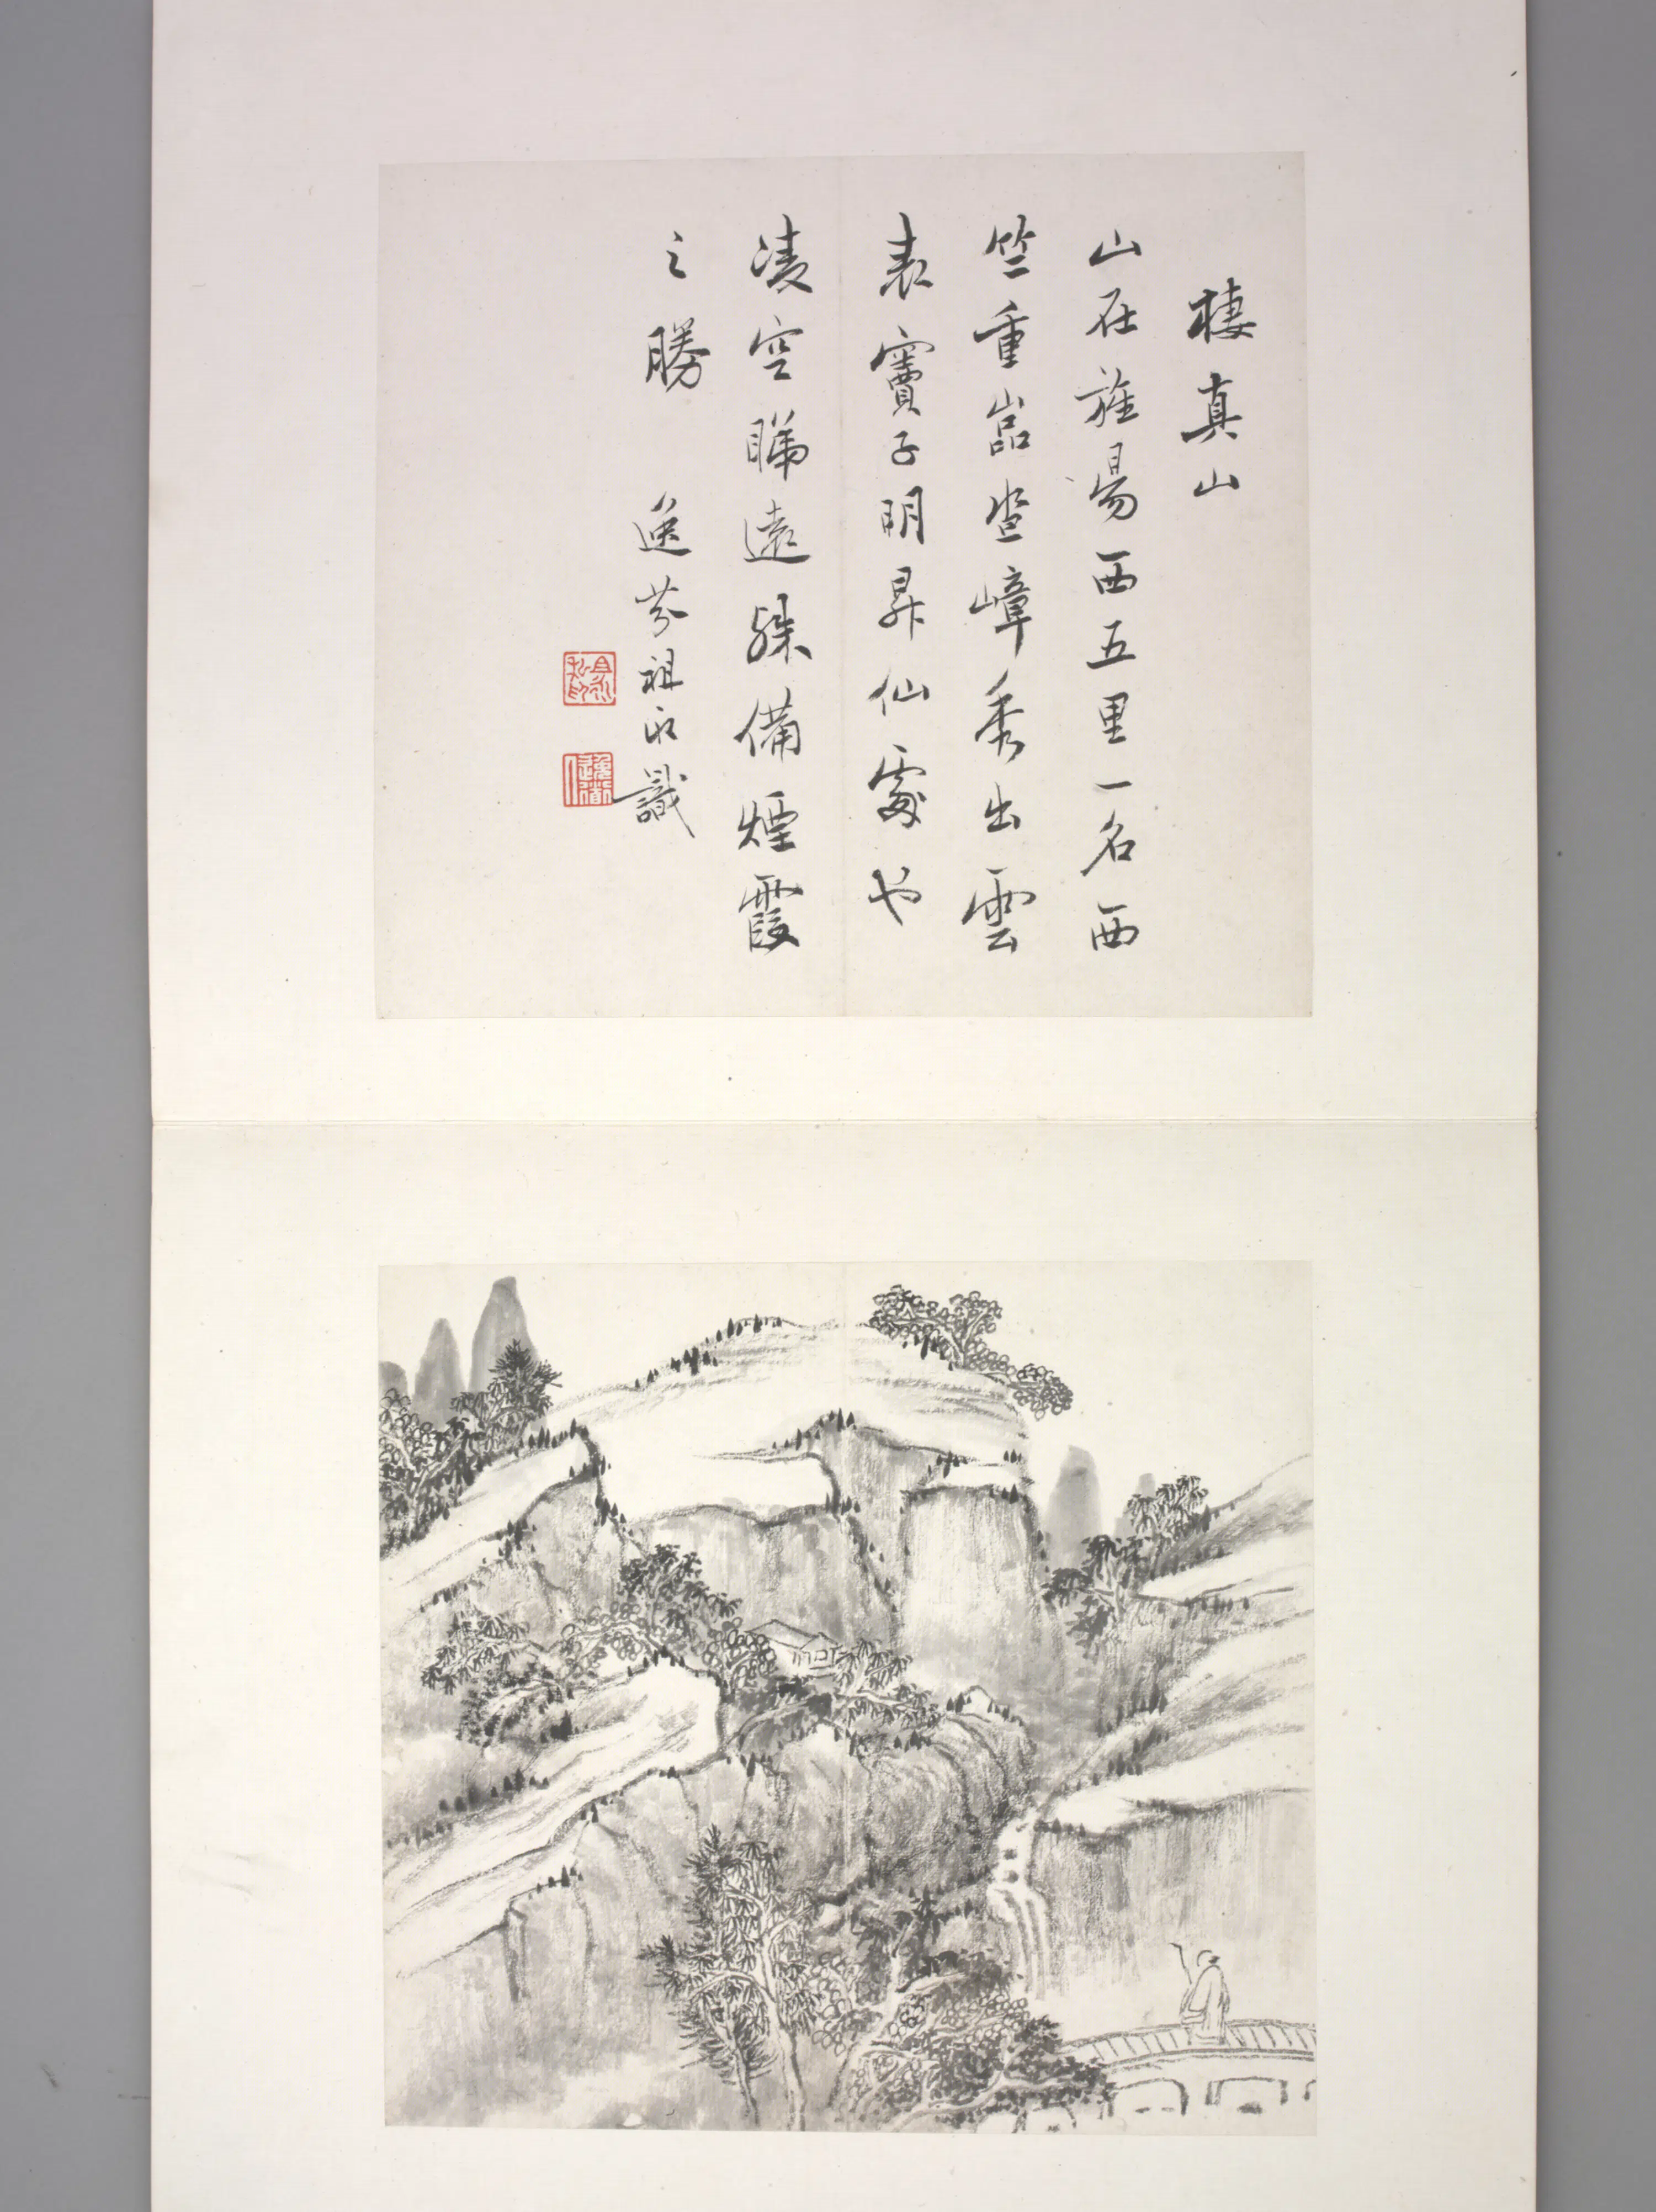 棲真山
山在旌昜西五里一名西
竺重嵓疊嶂秀出雲
表竇子明昇仙處也
凌空睇遠殊備煙霞
之勝 逸芬祖永識